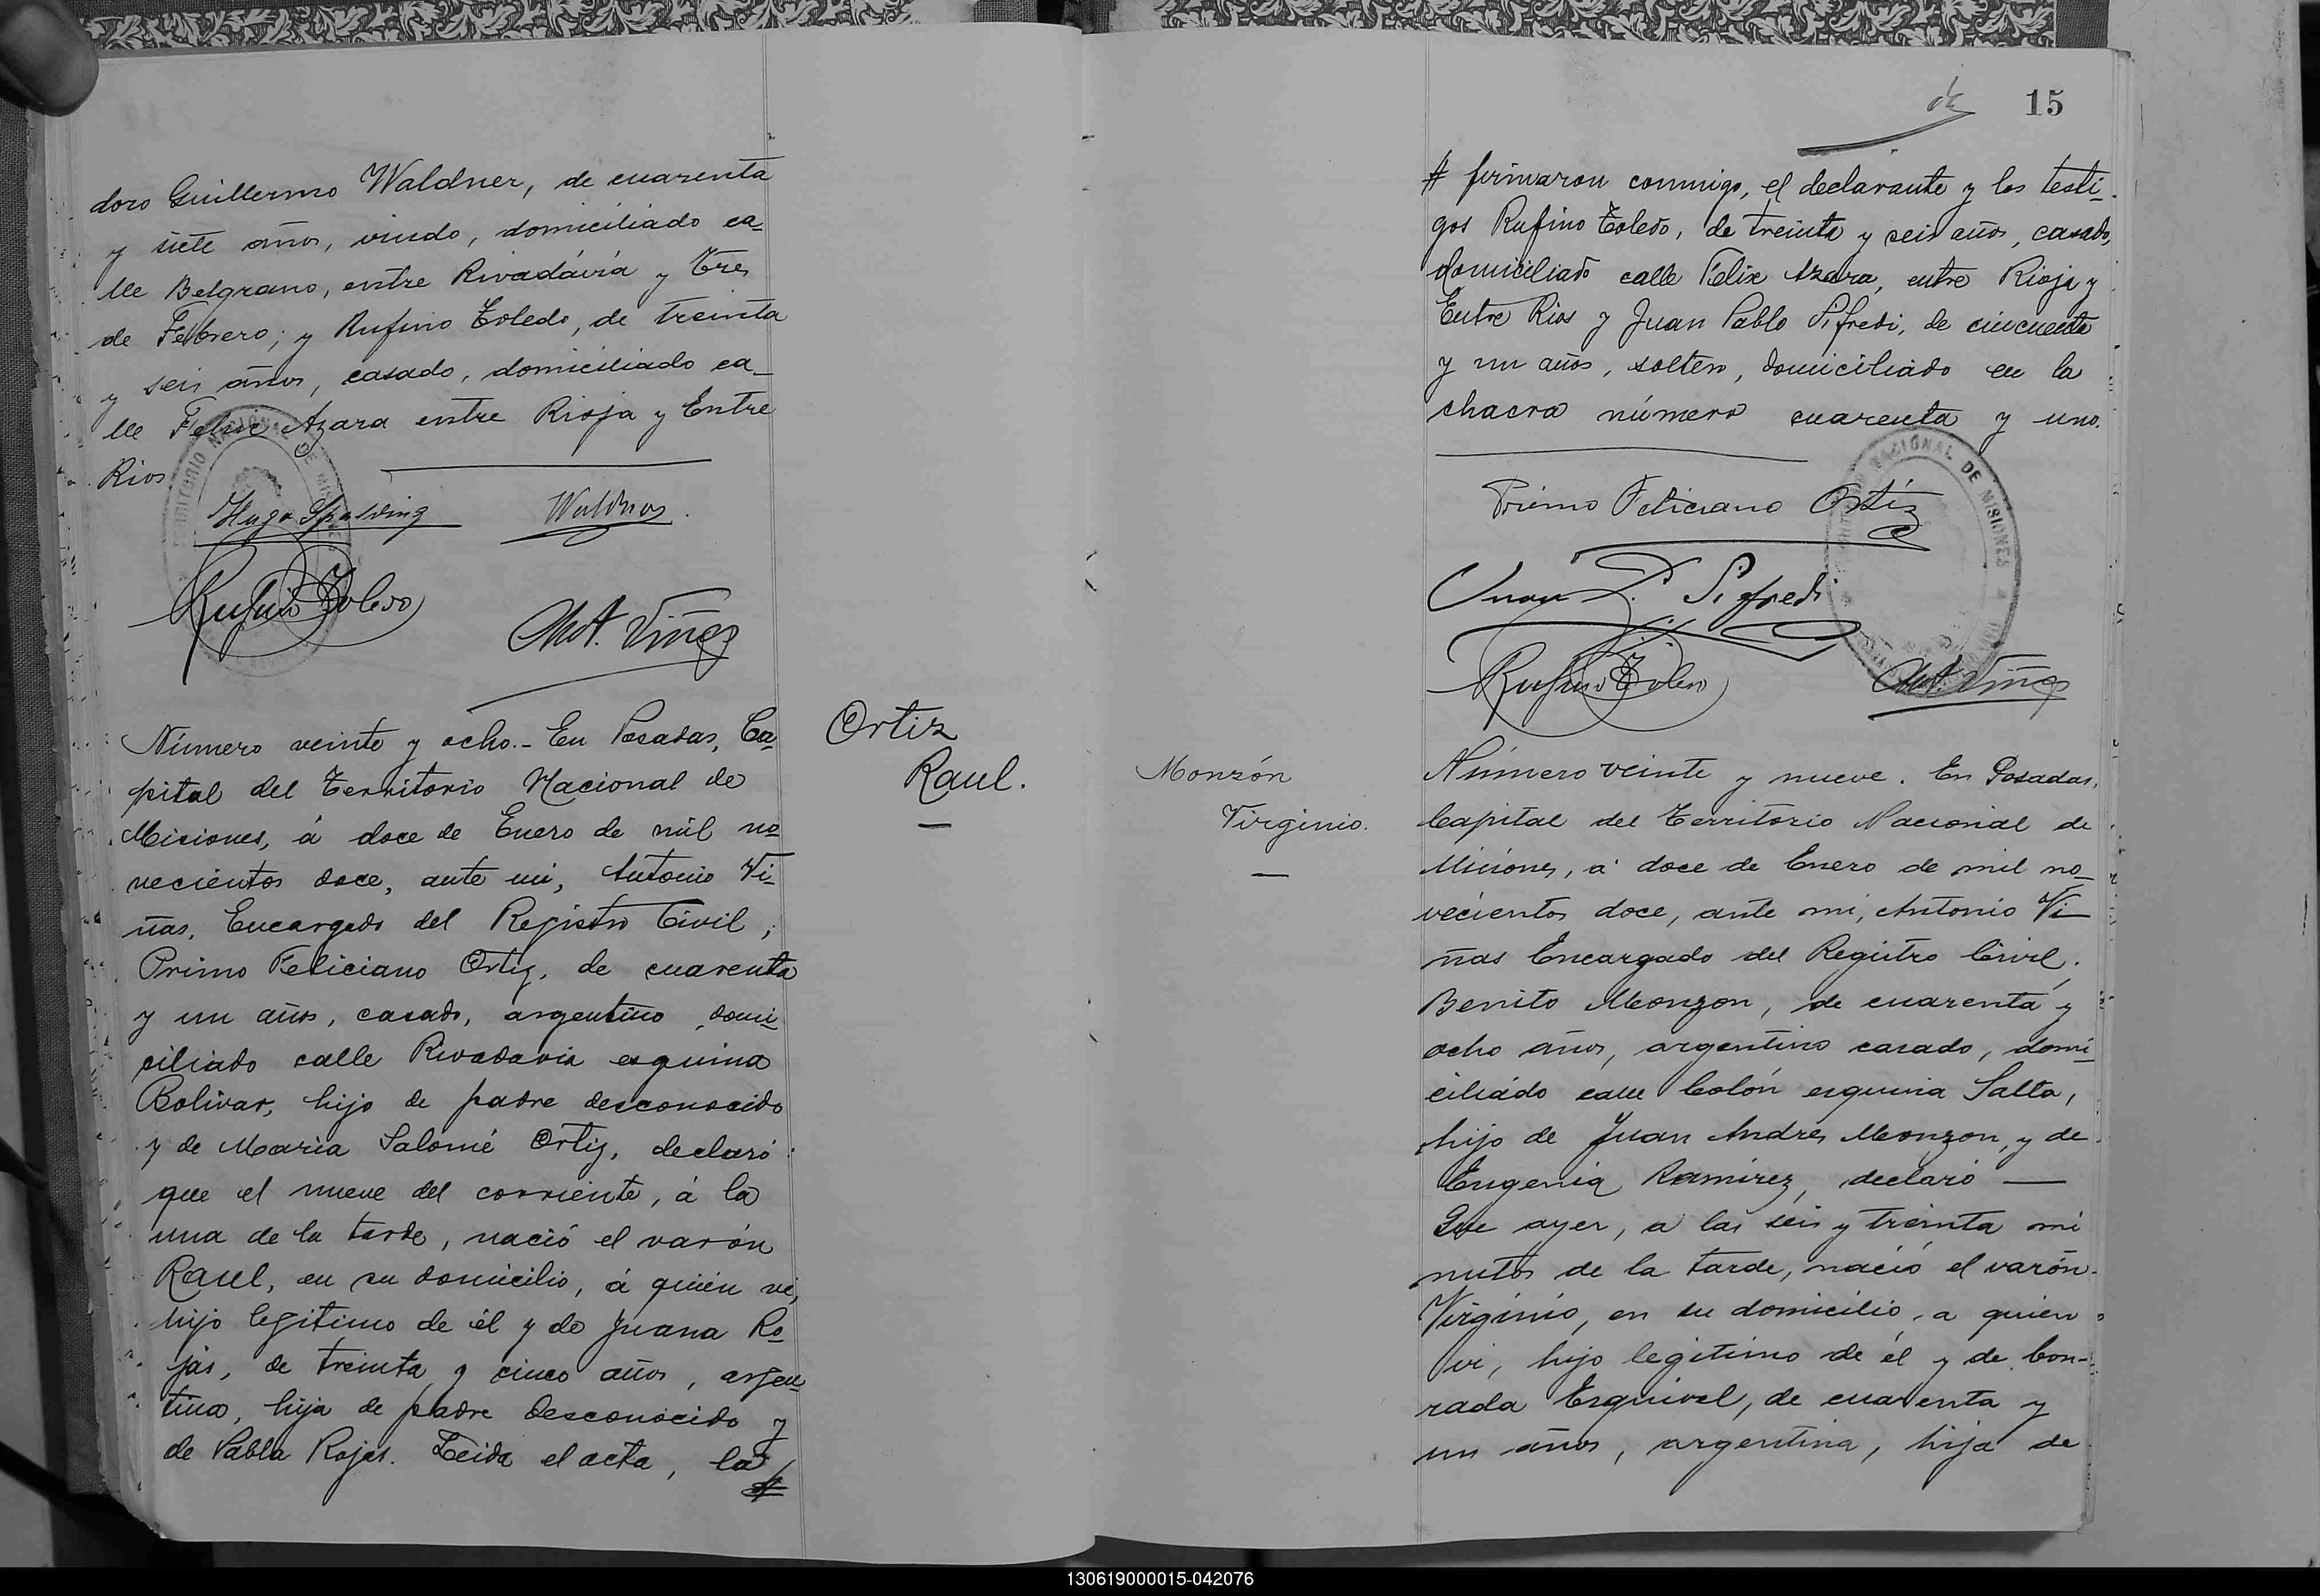 doro Guillermo Waldner, de cuarenta
y siete años, viudo, domiciliado ca_
lle Belgrano, entre Rivadávia y Tres
de Febrero; y Rufino Toledo, de treinta
y seis años, casado, domiciliado ca_
lle Felix Azara entre Rioja y Entre
Rios
Hugo Spalding
Waldner
Rufino Toledo
Ant. Viñas
Ortiz
Raul.
Número veinte y ocho.- En Posadas, Ca_
pital del Territorio Nacional de
Misiones, á doce de Enero de mil no_
vecientos doce, ante mi, Antonio Vi_
ñas, Encargado del Registro Civil,
Primo Feliciano Ortiz, de cuarenta
y un años, casado, argentino, domi_
ciliado calle Rivadavia esquina
Bolivar, hijo de padre desconocido
y de Maria Salomé Ortiz, declaró:
que el nueve del corriente, á la
una de la tarde, nació el varón
Raul, en su domicilio, á quién vi,
hijo legitimo de él y de Juana Ro_
jas, de treinta y cinco años, argen_
tina, hija de padre desconocido y
de Pabla Rojas. Leida el acta, la
#
15
# firmaron conmigo, el declarante y los testi_
gos Rufino Toledo, de treinta y seis años, casado,
domiciliado calle Felix Azara, entre Rioja y
Entre Rios y Juan Pablo Sifredi, de cincuenta
y un años, soltero, domiciliado en la
chacra número cuarenta y uno.
TERRITORIO NACIONAL DE MISIONES
Primo Feliciano Ortíz
Juan P. Sifredi
Rufino Toledo
Ant. Viñas
Monzón
Virginio.
Número veinte y nueve. En Posadas,
Capital del Territorio Nacional de
Misiones, a doce de Enero de mil no_
vecientos doce, ante mi, Antonio Vi_
ñas Encargado del Registro Civil,
Benito Monzon, de cuarenta y
ocho años, argentino casado, domi_
ciliádo calle Colón esquina Salta,
hijo de Juan Andres Monzon, y de
Eugenia Ramirez, declaró —
Que ayer, a las seis y treinta mi
nutos de la tarde, nació el varón
Virginio, en su domicilio, a quien
vi, hijo legitimo de él y de Con-
rada Esquivel, de cuarenta y
un años, argentina, hija de
130619000015-042076